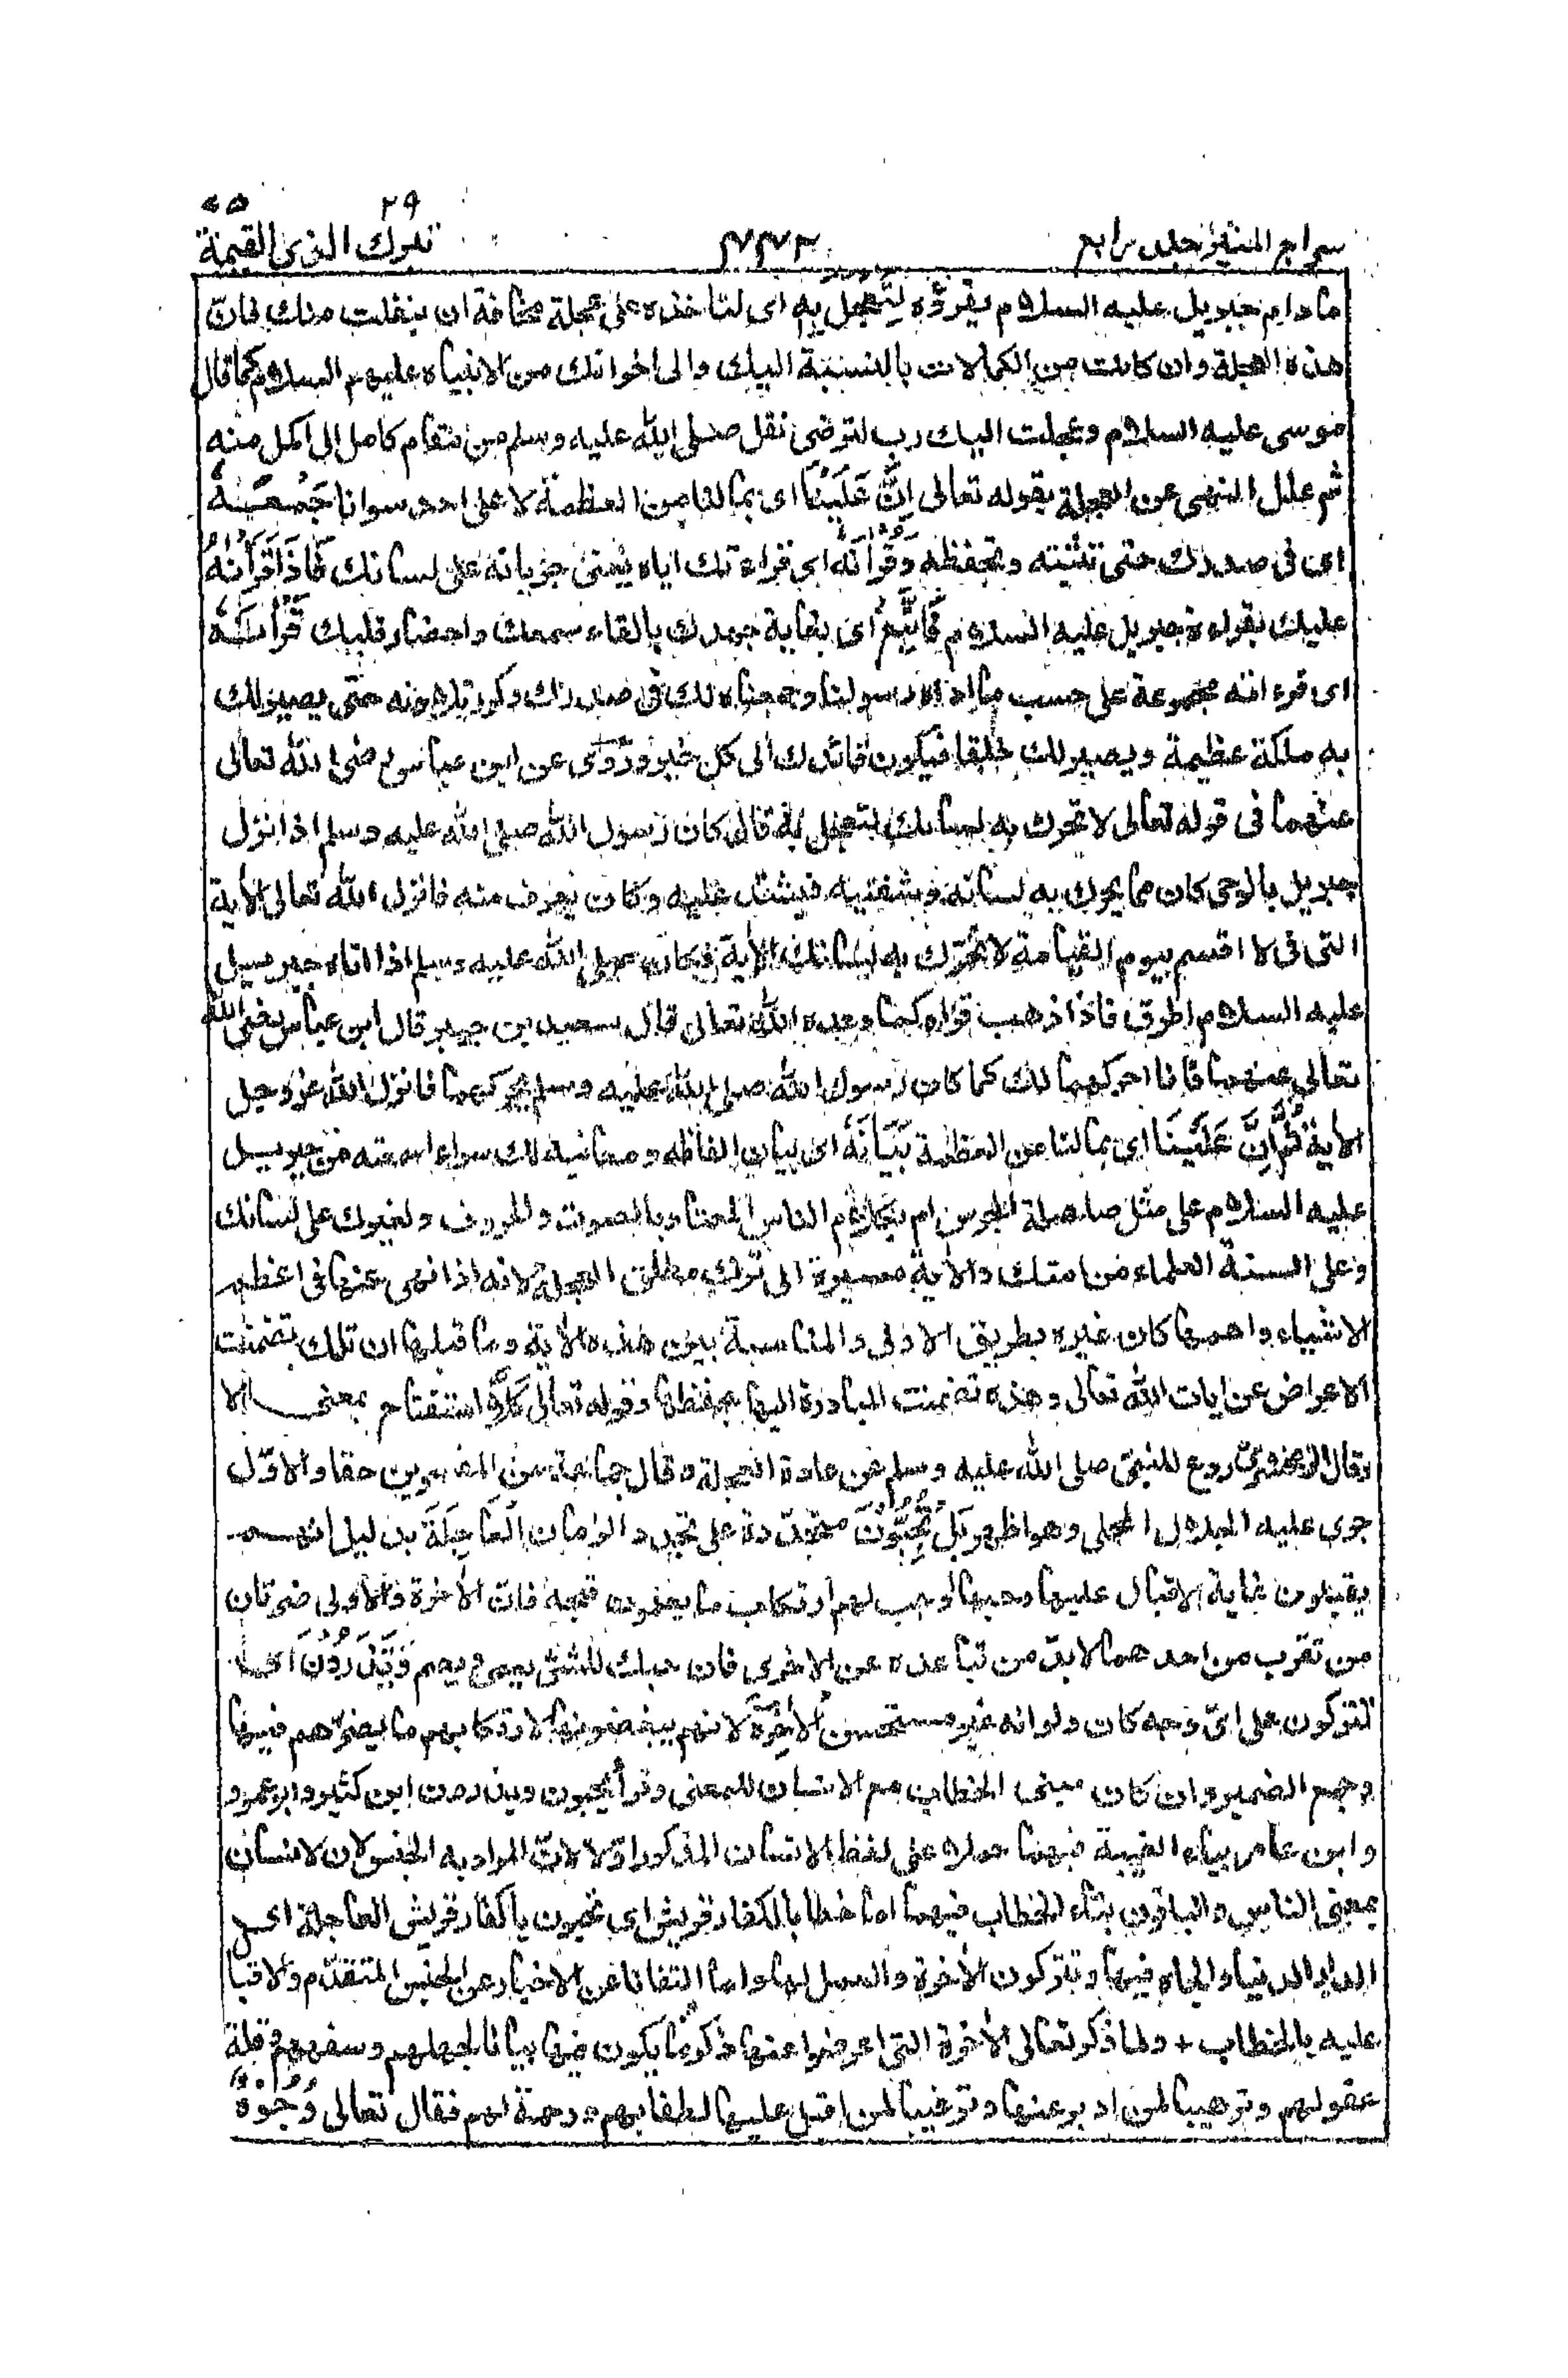 ٢٩ ٧٥
سراج المنير جلد رابع ٤٤٢ تبارك الذى القيمة
ما دام جبريل عليه السلام يقرؤه لِتَعْجَلَ بِهٖ اى لتاخذه على عجلة مخافة ان ينفلت منك فان
هذه العجلة وان كانت من الكمالات بالنسبة اليك والى اخوانك من الانبياء عليهم السلام كما قال
موسى عليه السلام وعجلت اليك رب لترضى نقل صلى الله عليه وسلم من مقام كامل الى اكمل منه
ثم علل النهى عن العجلة بقوله تعالى اِنَّ عَلَيْنَا اى بما لنا من العظمة لا على احد سوانا جَمْعَهٗ
اى فى صدرك حتى تثبته وتحفظه وَقُرْاٰنَهٗ اى قراءتك اياه يعنى جريانه على لسانك فَاِذَا قَرَاْنٰهُ
عليك بقراءة جبريل عليه السلام فَاتَّبِعْ اى بغاية جهدك بالقاء سمعك واحضار قلبك قُرْاٰنَهٗ
اى قرءانه مجموعة على حسب ما اداه رسولنا وجمعناه لك فى صدرك وكرر تلاوته حتى يصير لك
به ملكة عظيمة ويصير لك خلقا فيكون قائدك الى كل خير وروى عن ابن عباس رضى الله تعالى
عنهما فى قوله تعالى لا تحرك به لسانك لتعجل به قال كان رسول الله صلى الله عليه وسلم اذا نزل
جبريل بالوحى كان مما يحرك به لسانه وشفتيه فيشتد عليه وكان يعرف منه فانزل الله تعالى الاية
التى فى لا اقسم بيوم القيامة لا تحرك به لسانك الاية فكان صلى الله عليه وسلم اذا اتاه جبريل
عليه السلام اطرق فاذا ذهب قرأه كما وعده الله تعالى قال سعيد بن جبير قال ابن عباس رضى الله
تعالى عنهما فانا احركهما لك كما كان رسول الله صلى الله عليه وسلم يحركهما فانزل الله عز وجل
الاية ثُمَّ اِنَّ عَلَيْنَا اى بما لنا من العظمة بَيَانَهٗ اى بيان الفاظه ومعانيه لك سواء اسمعته من جبريل
عليه السلام على مثل صلصلة الجرس ام بكلام الناس المعتاد بالصوت والحروف ولغيرك على لسانك
وعلى السنة العلماء من امتك والاية مسيرة الى ترك مطلق العجلة لانه اذا نهى عنها فى اعظم
الاشياء واهمها كان غيره بطريق الاولى والمناسبة بين هذه الاية وما قبلها ان تلك تضمنت
الاعراض عن ايات الله تعالى وهذه تضمنت المبادرة اليها بحفظها وقوله تعالى كَلَّا استفتاح بمعنى الا
وقال الزمخشرى ردع للنبى صلى الله عليه وسلم عن عادة العجلة وقال جماعة من المفسرين حقا والاول
جرى عليه الجلال المحلى وهو اظهر بَلْ تُحِبُّوْنَ متجددة على تجدد الزمان الْعَاجِلَةَ بدليل انهم
يقبلون غاية الاقبال عليها وحبها اوجب لهم ارتكاب ما يعلمون قبحه فان الاخرة والاولى ضرتان
من تقرب من احدهما لابد من تباعده عن الاخرى فان حبك للشئ يعمى ويصم وَتَذَرُوْنَ اى
تتركون على اى وجه كان ولو انه غير مستحسن الْاٰخِرَةَ لانهم يبغضونها لارتكابهم ما يضرهم فيها
وجمع الضمير وان كان مبنى الخطاب مع الانسان للمعنى وقرأ يحبون ويذرون ابن كثير وابو عمرو
وابن عامر بياء الغيبة فيهما حملا على لفظ الانسان المذكور اولا لان المراد به الجنس لان الانسان
بمعنى الناس والباقون بتاء الخطاب فيهما اما خطابا لكفار قريش اى تحبون يا كفار قريش العاجلة اى
الدار الدنيا والجاه فيها وتتركون الاخرة والعمل لها واما التفاتا عن الاخبار عن الجنس المتقدم والاقبا
عليه بالخطاب + ولما ذكر تعالى الاخرة التى اعرضوا عنها ذكر ما يكون فيها بيانا لجهلهم وسفههم وقلة
عقولهم وترهيبا لمن ادبر عنها وترغيبا لمن اقبل عليها لطفا بهم ورحمة لهم فقال تعالى وُجُوْهٌ